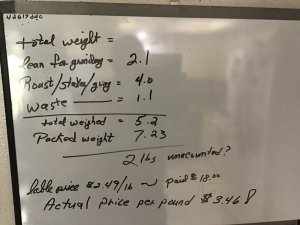 total weight =
lean for grinding = 2.1
Roast/steaks/ = 4.0
Waste = 1.1
total weighed = 5.2
Packed weight 7.23
2 lbs unaccounted?
price $2.49/lb ~ paid $18.00
Actual price per pound $3.46